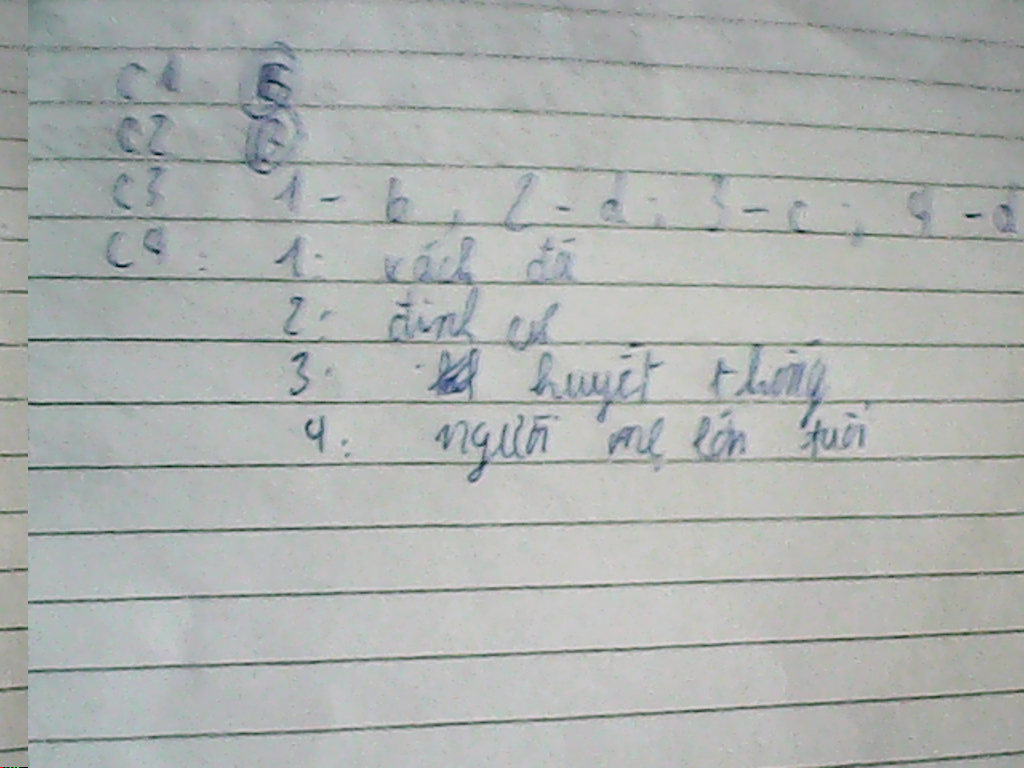 C1 B
C2
C3 1 - b, 2 - d; 3 - c; 4 - d
C4: 1: xách đá
2: định cư
3: huyết thống
4: người mẹ lớn tuổi